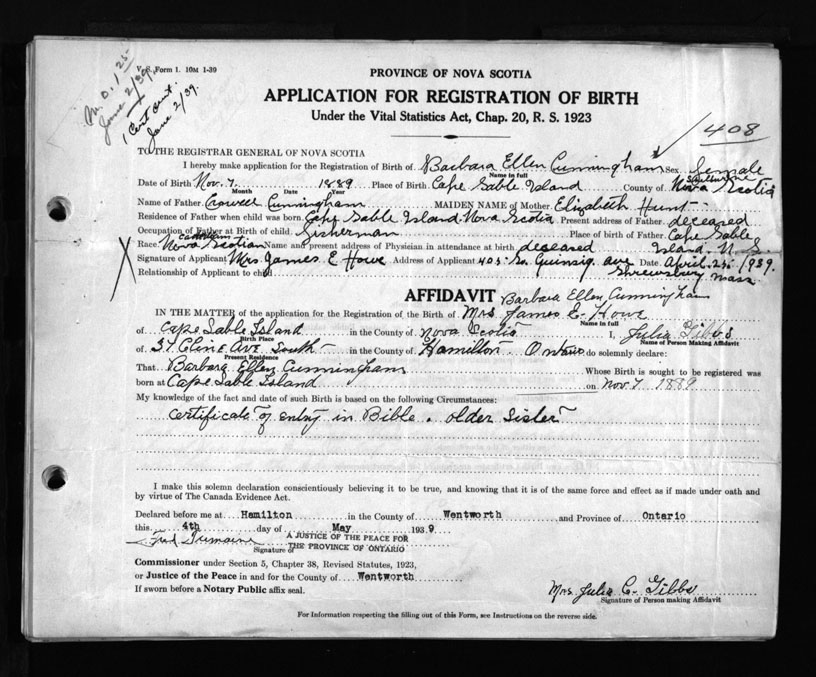 M.O. 1.25
June 2/39
1 Cert Out.
June 2/39.
V. S. Form 1. 10M 1-39
PROVINCE OF NOVA SCOTIA
APPLICATION FOR REGISTRATION OF BIRTH
Under the Vital Statistics Act, Chap. 20, R. S. 1923
408
TO THE REGISTRAR GENERAL OF NOVA SCOTIA
I hereby make application for the Registration of Birth of Barbara Ellen Cunningham Sex female
Name in full
Shelburne
Date of Birth Nov. 7. 1889 Place of Birth Cape Sable Island County of Nova Scotia
Month Year
Name of Father Crowell Cunningham MAIDEN NAME of Mother Elizabeth Hunt
Residence of Father when child was born Cape Sable Island Nova Scotia Present address of Father deceased
Occupation of Father at Birth of child Fisherman Place of birth of Father Cape Sable
Race Nova Scotian Name and present address of Physician in attendance at birth deceased Island N. S.
Signature of Applicant Mrs. James E Howe Address of Applicant 405 So. Quinsig. ave Date April 25. 1939.
Relationship of Applicant to child Shrewsbury Mass.
AFFIDAVIT
Barbara Ellen Cunningham
IN THE MATTER of the application for the Registration of the Birth of Mrs James E. Howe
Name in full
of Cape Sable Island in the County of Nova Scotia I, Julia Gibbs
Birth Place Name of Person Making Affidavit
of 37 Cline Ave South in the County of Hamilton Ontario do solemnly declare:
Present Residence
That Barbara Ellen Cunningham Whose Birth is sought to be registered was
born at Cape Sable Island on Nov 7 1889
My knowledge of the fact and date of such Birth is based on the following Circumstances:
Certificate of entry in Bible. older Sister
I make this solemn declaration conscientiously believing it to be true, and knowing that it is of the same force and effect as if made under oath and
by virtue of The Canada Evidence Act.
Declared before me at Hamilton in the County of Wentworth and Province of Ontario
this 4th day of May 1939
A JUSTICE OF THE PEACE FOR
Fred Tremaine THE PROVINCE OF ONTARIO
Signature of
Commissioner under Section 5, Chapter 38, Revised Statutes, 1923,
or Justice of the Peace in and for the County of Wentworth
If sworn before a Notary Public affix seal.
Mrs. Julia C. Gibbs
Signature of Person making Affidavit
For Information respecting the filling out of this Form, see Instructions on the reverse side.